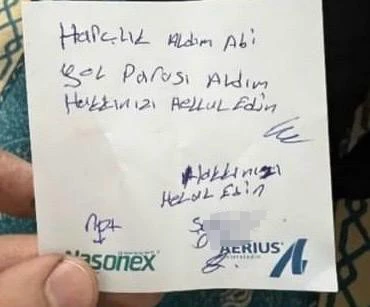 Harçlık Aldım Abi
Yol Parası Aldım
Hakkınızı Hellal Edin
Hakkınızı
Helal Edin
Not
S
D
Nasonex
AERIUS